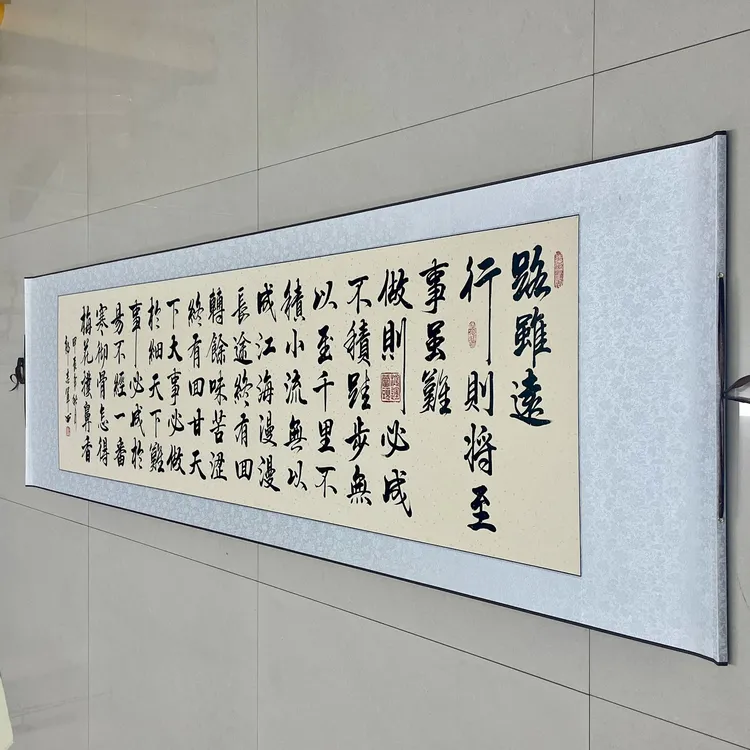 路雖遠
行則将至
事虽難
做則必成
不積跬步無
以至千里不
積小流無以
成江海漫漫
長途終有回
轉餘味苦澀
終有回甘天
下大事必做
於細天下難
事必成於
易不經一番
寒彻骨怎得
梅花撲鼻香